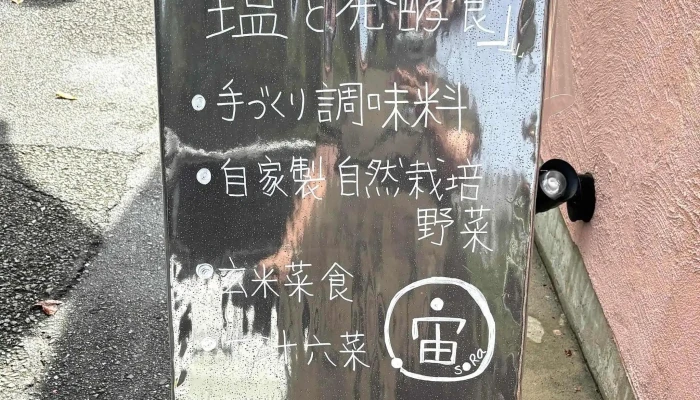 塩と発酵食」
・手づくり調味料
・自家製自然栽培
野菜
・玄米菜食
十六菜
宙
SORA